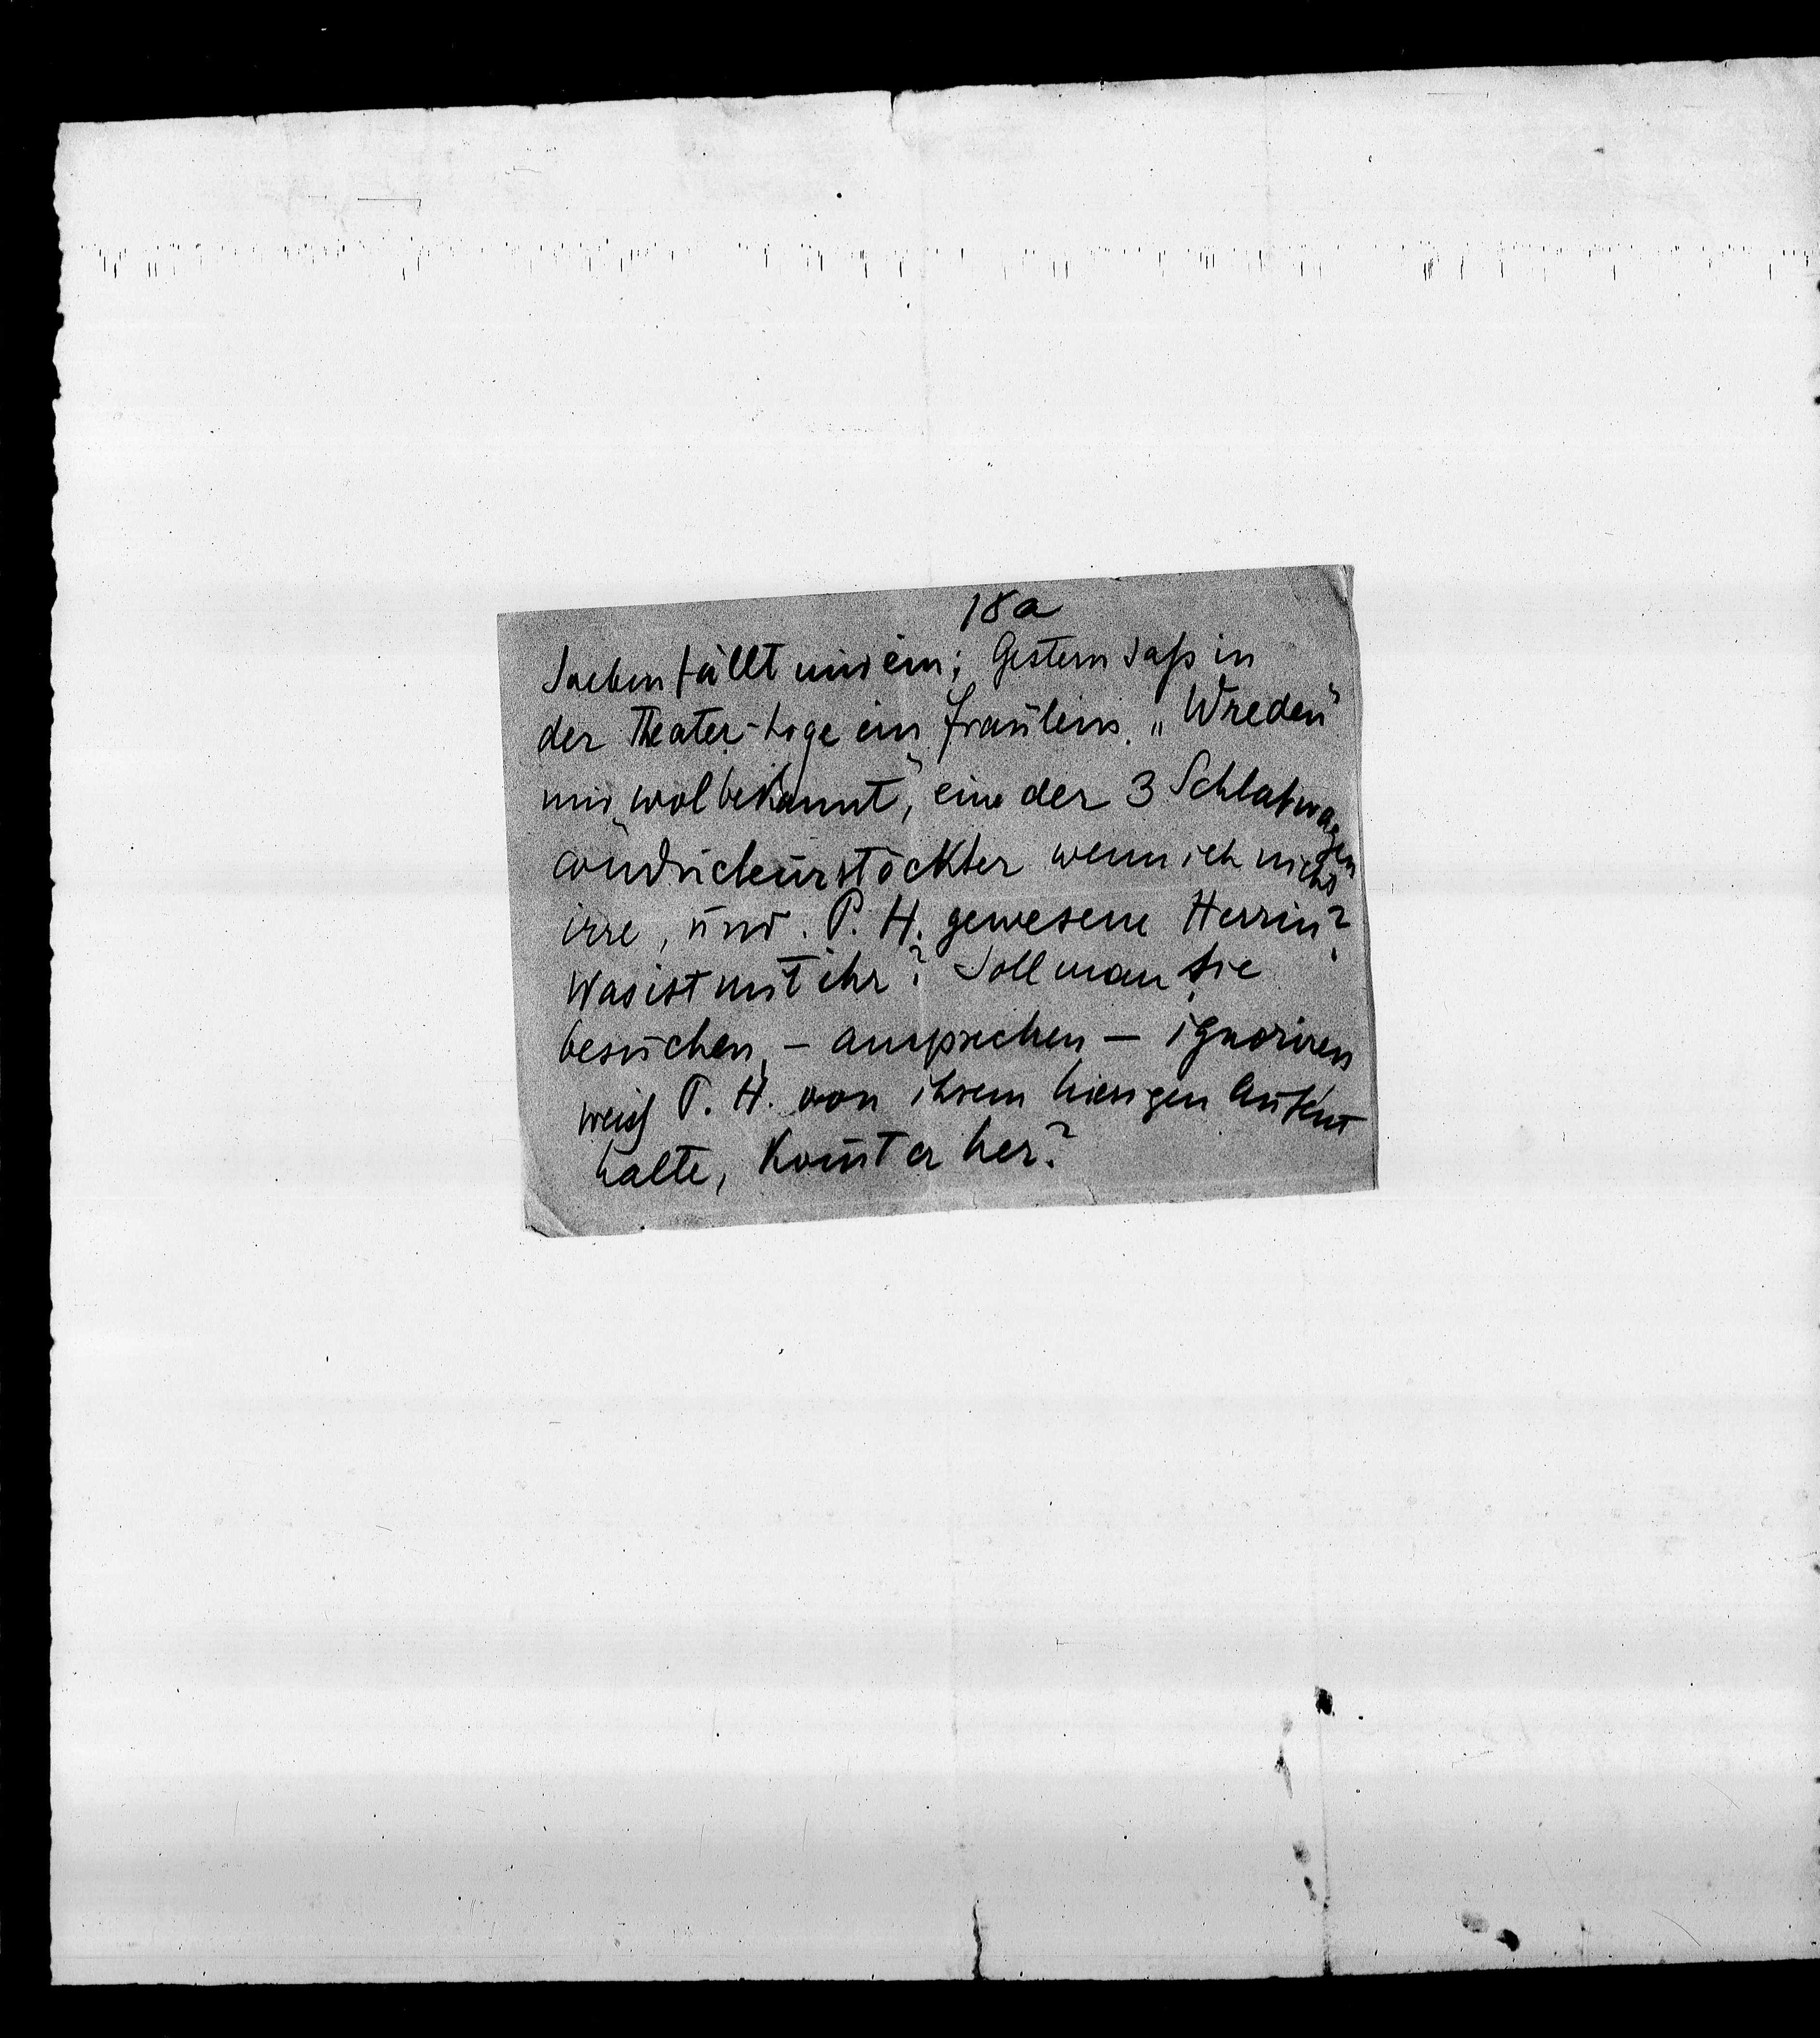 18a
Soeben fällt mir ein; Gestern saß in
der Theater-Loge ein Fräulein „Wreden"
mir „wol bekannt", eine der 3 Schlafwagen
conducteurstöchter wenn ich nicht
irre, und P. H. gewesene Herrin?
Was ist mit ihr? Soll man sie
besuchen, – ansprechen – ignoriren
weiß P. H. von ihrem hiesigen Aufent
halte, kom̄t er her?